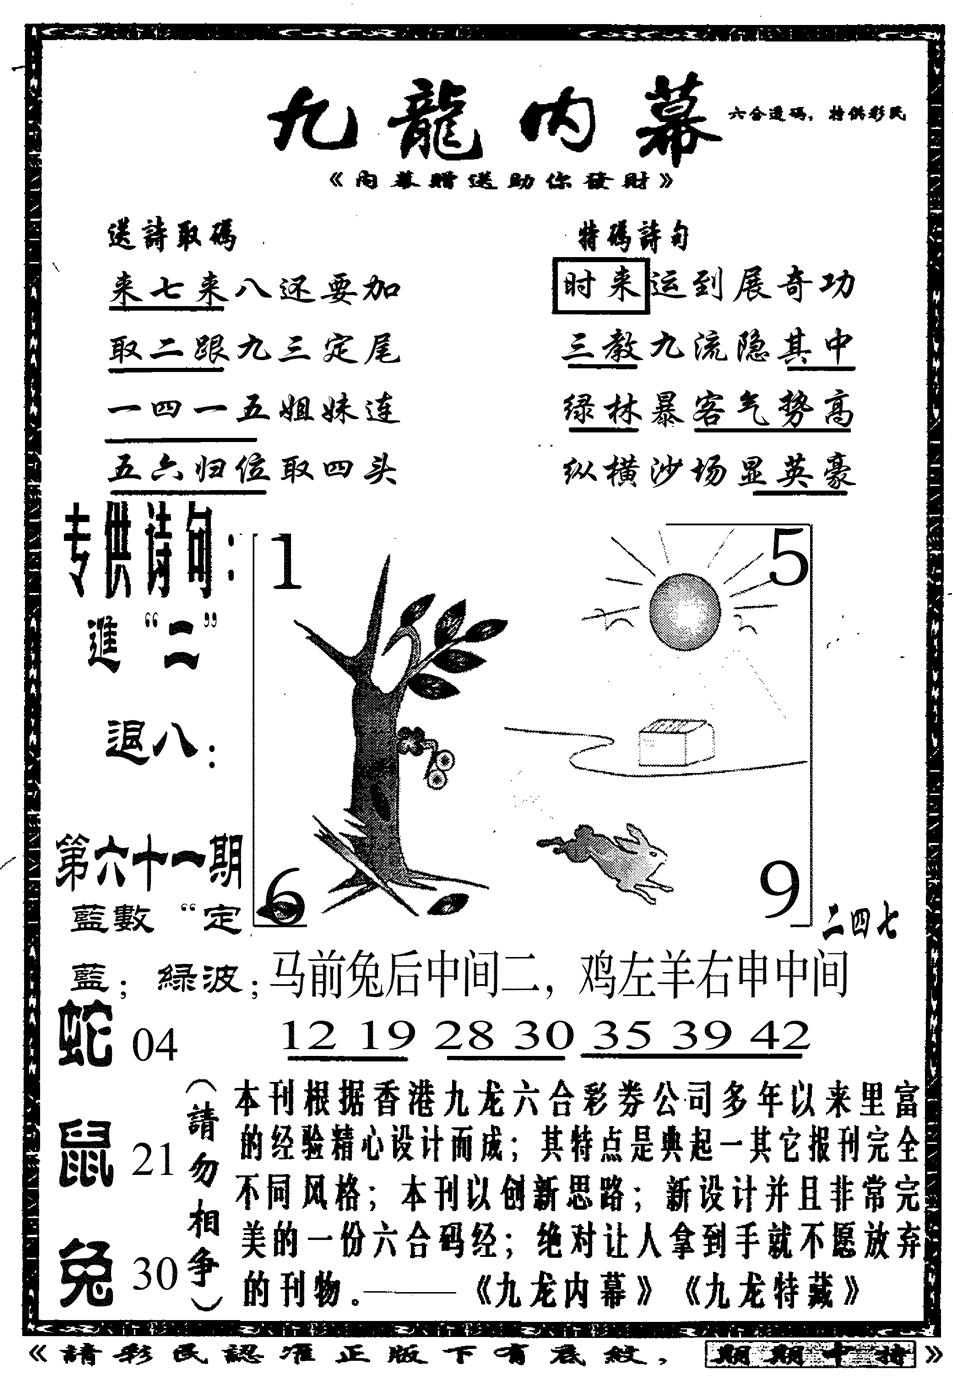 九龍内幕
六合透碼，特供彩民
《内幕贈送助你發財》
送詩取碼
来七来八还要加
取二跟九三定尾
一四一五姐妹连
五六归位取四头
特碼詩句
时来运到展奇功
三教九流隐其中
绿林暴客气势高
纵横沙场显英豪
专供诗句：
進“二”
退八：
第六十一期
藍數“定
藍；綠波；
1
5
6
9
二四七
马前兔后中间二，鸡左羊右申中间
12 19 28 30 35 39 42
蛇 04
鼠 21
兔 30
（請勿相争）
本刊根据香港九龙六合彩券公司多年以来里富
的经验精心设计而成；其特点是典起一其它报刊完全
不同风格；本刊以创新思路；新设计并且非常完
美的一份六合码经；绝对让人拿到手就不愿放弃
的刊物。——《九龙内幕》《九龙特藏》
《請彩民認准正版下有底紋，期期中特》